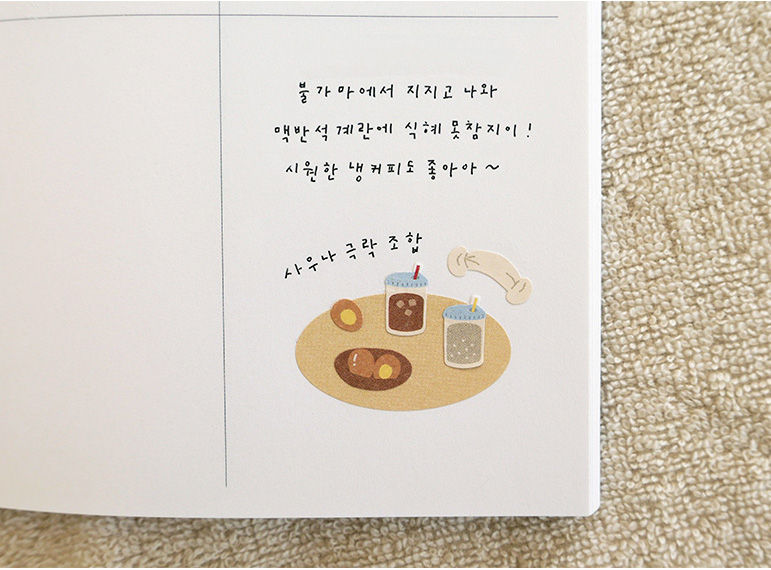 불가마에서 지지고 나와
맥반석계란에 식혜 못참지이!
시원한 냉커피도 좋아아~
사우나 극락 조합